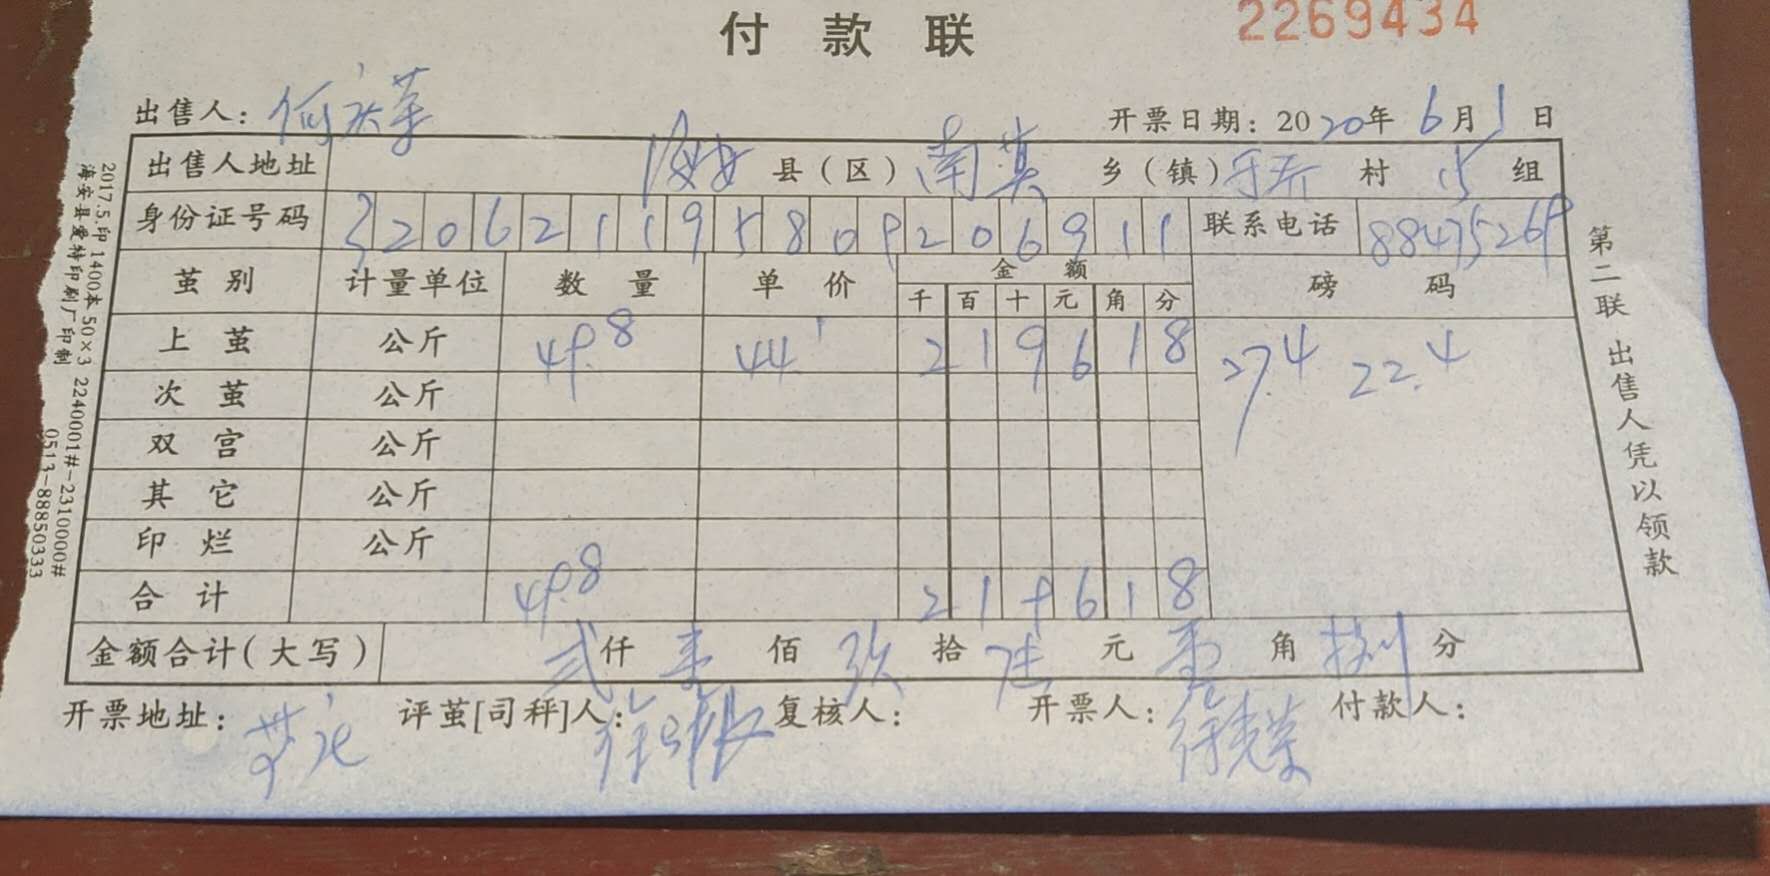 付款联
2269434
出售人：何
开票日期：2020年6月1日
出售人地址 海安 县（区）南莫 乡（镇） 村 15 组
身份证号码 320621195809206911 联系电话 88475269
茧别 计量单位 数量 单价 金额 磅码
千 百 十 元 角 分
上茧 公斤 49.8 44.1 2 1 9 6 1 8 27.4 22.4
次茧 公斤
双宫 公斤
其它 公斤
印烂 公斤
合计 49.8 2 1 9 6 1 8
金额合计(大写) 贰仟壹佰玖拾陆元壹角捌分
开票地址： 评茧[司秤]人：徐 复核人： 开票人：徐 荣 付款人：
第二联 出售人凭以领款
2017.5.印 1400本 50×3 2240001#-2310000#
海安县爱特印刷厂印制 0513-88850333